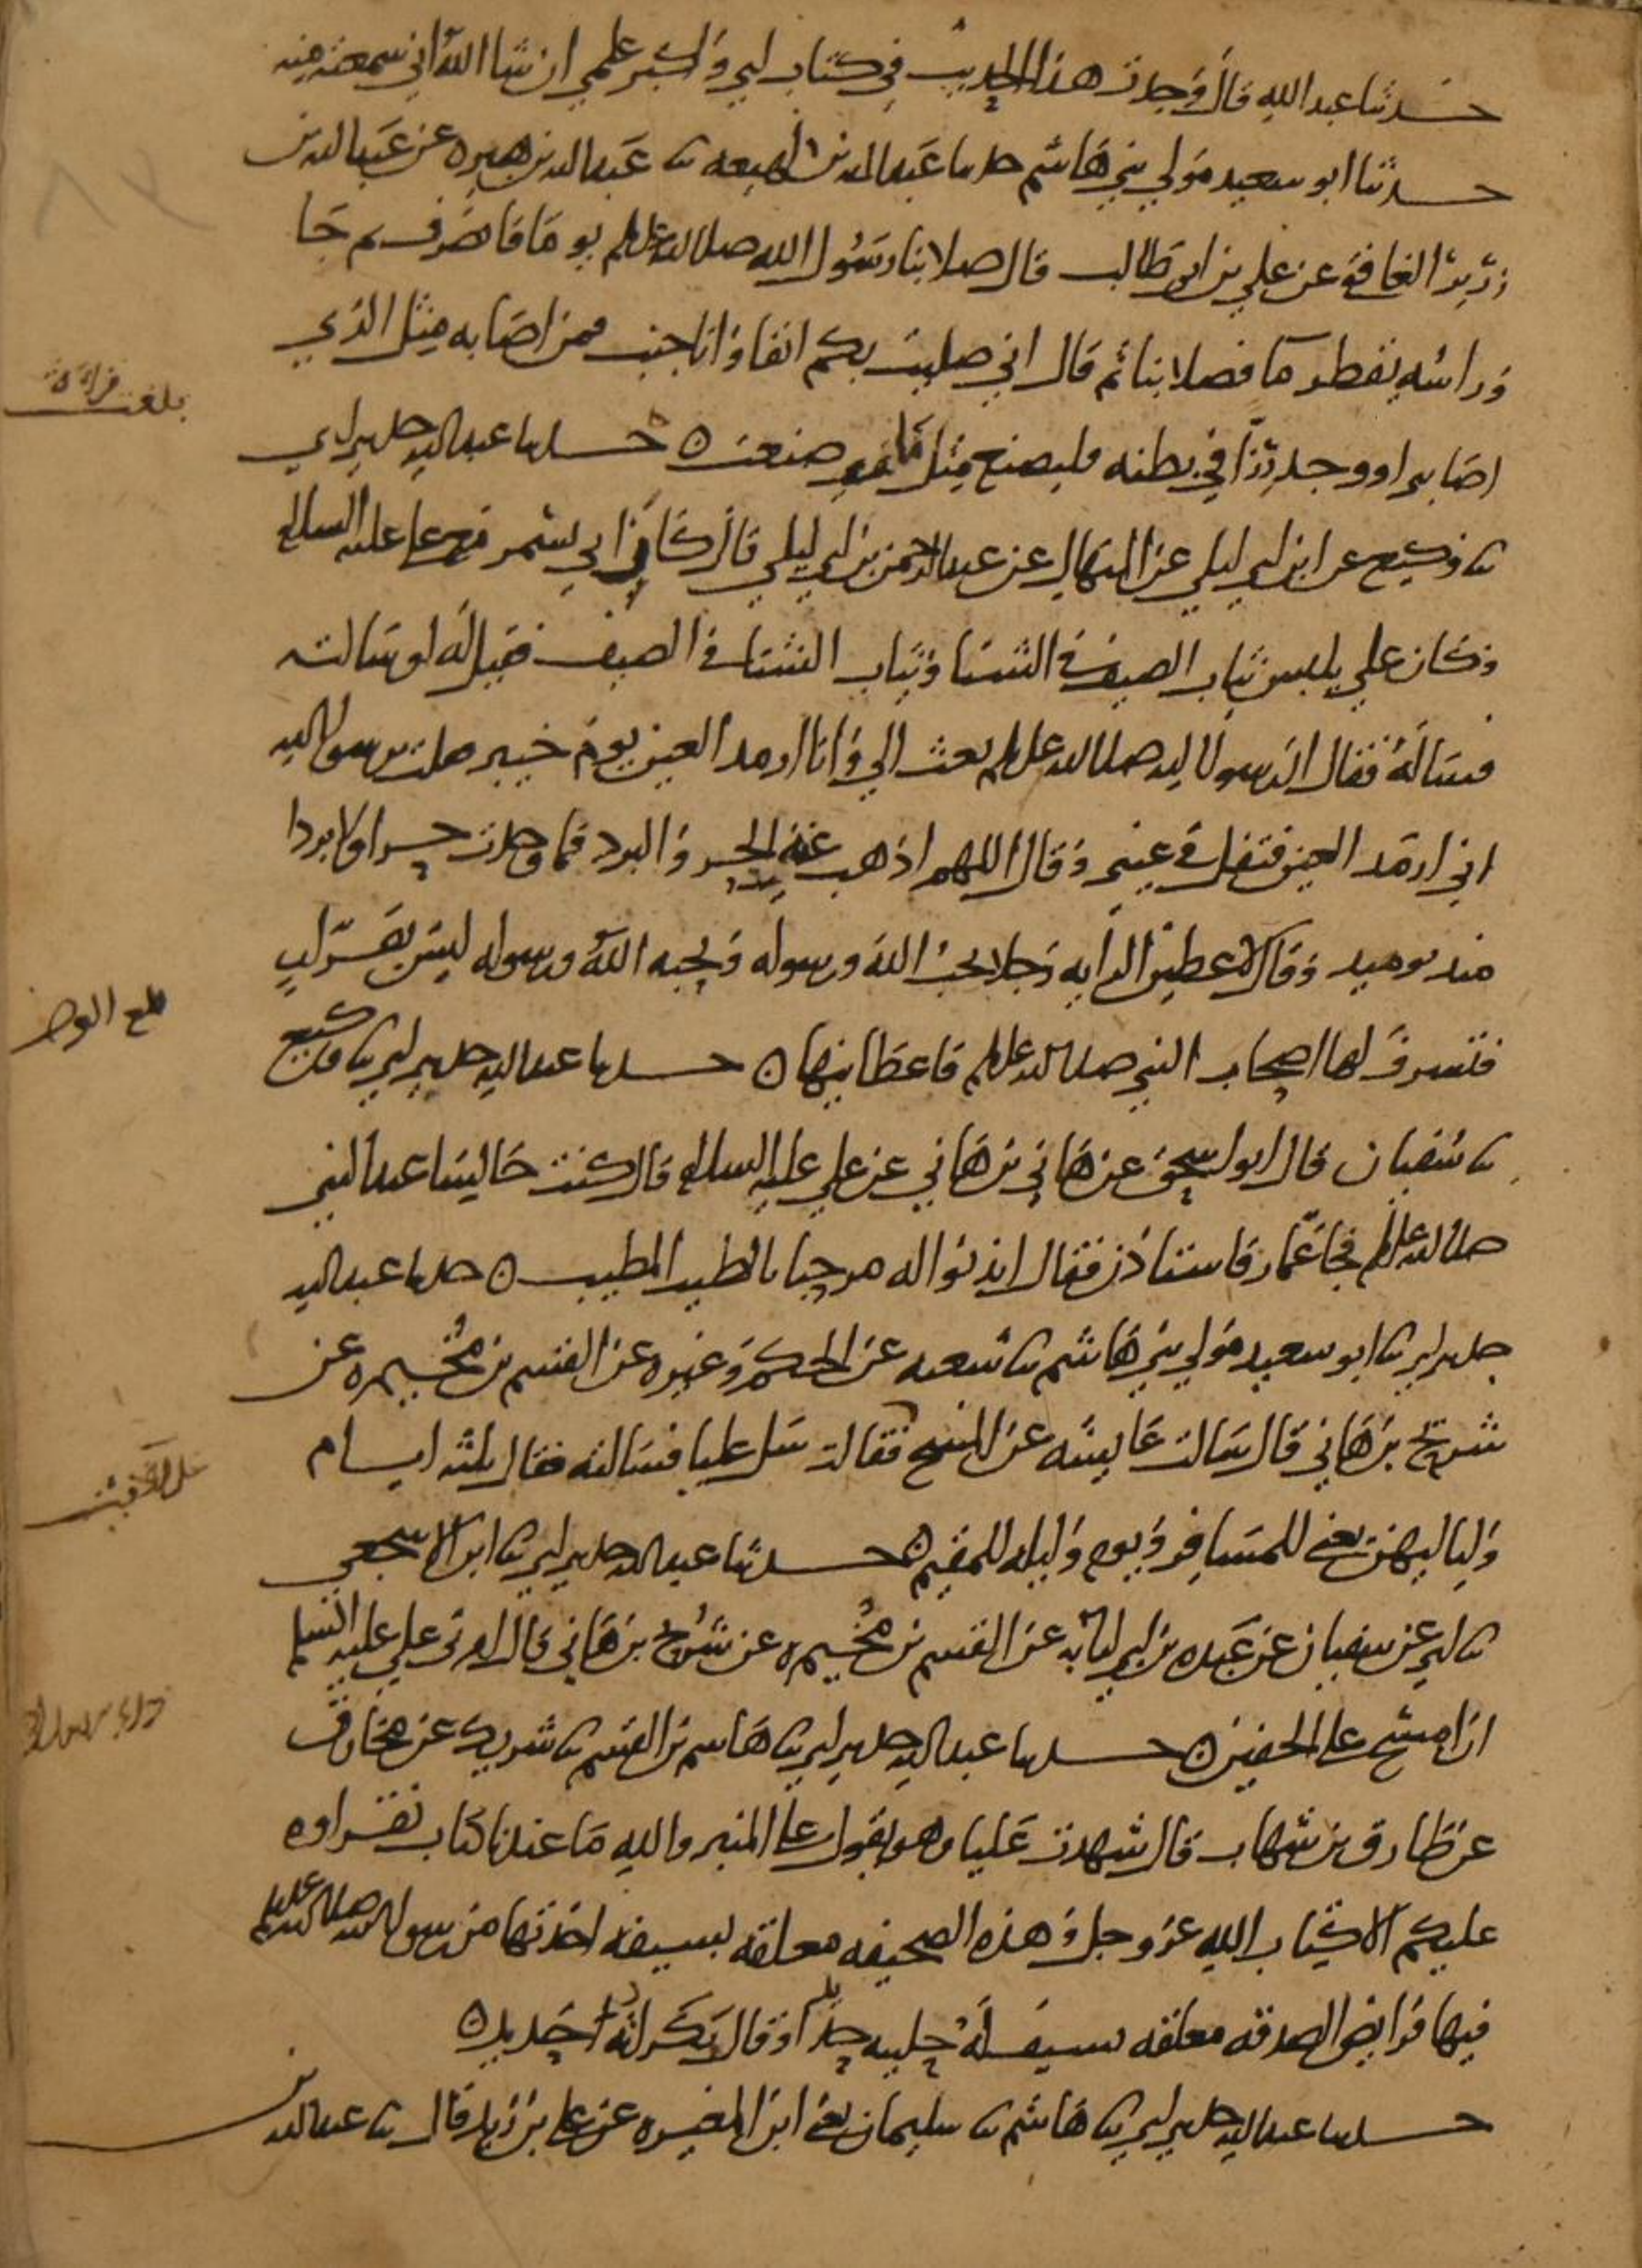 حدثنا عبد الله قال وجدت هذا الحديث في كتاب ابي واكبر علمي ان شا الله اني سمعته منه
حدثنا ابو سعيد مولي بني هاشم حدثنا عبد الله بن لهيعه ثنا عبد الله بن هبيره عن عبد الله بن
زرير الغافقي عن علي بن ابي طالب قال صلا بنا رسول الله صلى الله عليه وسلم يوما فانصرف ثم جا
وراسه يقطر ما فصلا بنا ثم قال اني صليت بكم انفا وانا جنب فمن اصابه مثل الذي
اصابني او وجد رزا في بطنه فليصنع مثل ما صنعت ه حدثنا عبد الله حدثني ابي
ثنا وكيع عن ابن ابي ليلي عن المنهال عن عبد الرحمن بن ابي ليلي قال كان ابي يسمر مع علي عليه السلام
وكان علي يلبس ثياب الصيف في الشتا وثياب الشتا في الصيف فقيل له لو سالته
فساله فقال ان رسول الله صلى الله عليه وسلم بعث الي وانا ارمد العين يوم خيبر فقلت يرسول الله
اني ارمد العين فتفل في عيني وقال اللهم اذهب عنه الحر والبرد فما وجدت حرا ولا بردا
منذ يوميذ وقال لاعطين الرايه رجلا يحب الله ورسوله ويحبه الله ورسوله ليس بفرار
فتشرف لها اصحاب النبي صلى الله عليه وسلم فاعطانيها ه حدثنا عبد الله حدثني ابي ثنا وكيع
ثنا سفيان قال ابو اسحق عن هاني بن هاني عن علي عليه السلام قال كنت جالسا عند النبي
صلى الله عليه وسلم فجا عمار فاستاذن فقال ايذنوا له مرحبا بالطيب المطيب ه حدثنا عبد الله
حدثني ابي ثنا ابو سعيد مولي بني هاشم ثنا شعبه عن الحكم وغيره عن القسم بن مخيمره عن
شريح بن هاني قال سالت عايشه عن المسح فقالت سل عليا فسالته فقال ثلثه ايام
ولياليهن يعني للمسافر ويوم وليله للمقيم ه حدثنا عبد الله حدثني ابي ثنا ابن الاشجعي
ثنا ابي عن سفيان عن عبده بن ابي لبابه عن القسم بن مخيمره عن شريح بن هاني قال امرني علي عليه السلم
ان امسح على الخفين ه حدثنا عبد الله حدثني ابي ثنا هاشم بن القسم ثنا شريك عن مخارق
عن طارق بن شهاب قال شهدت عليا وهو يقول على المنبر والله ما عندنا كتاب نقراوه
عليكم الا كتاب الله عز وجل وهذه الصحيفه معلقه بسيفه اخذتها من رسول الله صلى الله عليه وسلم
فيها فرايض الصدقه معلقه بسيف له حليته حديد او قال بكراته حديد ه
حدثنا عبد الله حدثني ابي ثنا هاشم ثنا سليمان يعني ابن المغيره عن علي بن زيد قال ثنا عبد الله بن
بلغت قراءة